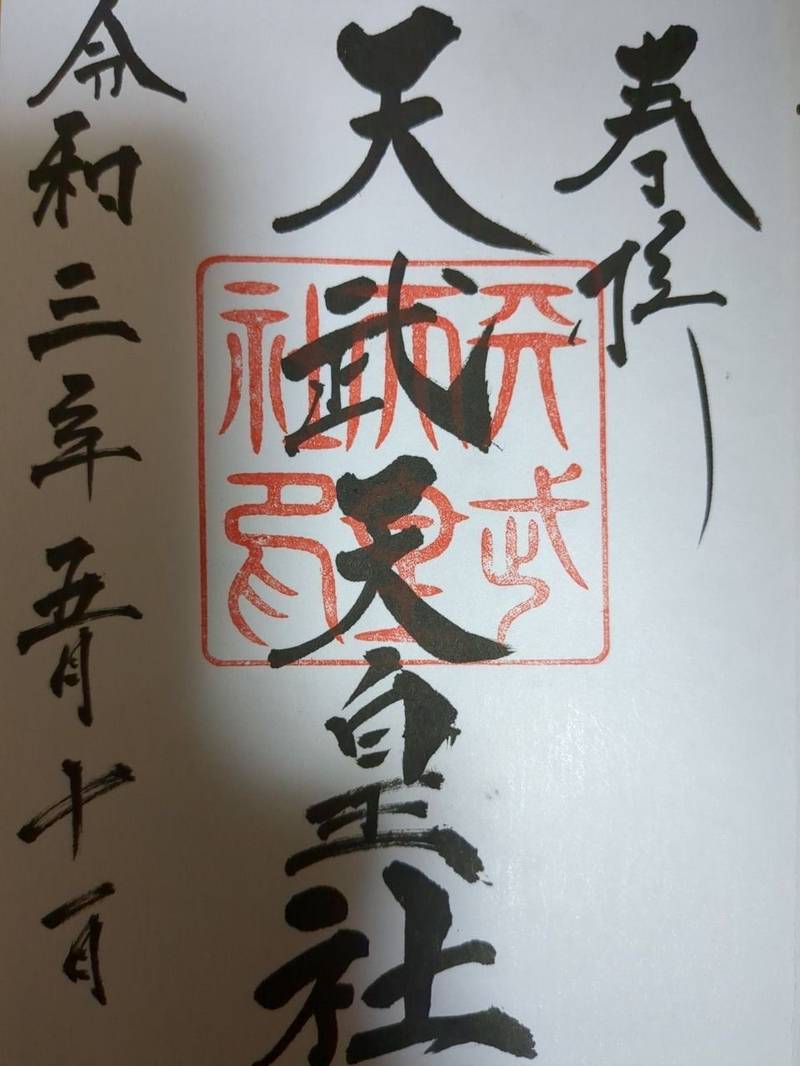 奉拝
天武天皇社
令和三年五月十一日
天武
天皇
社印